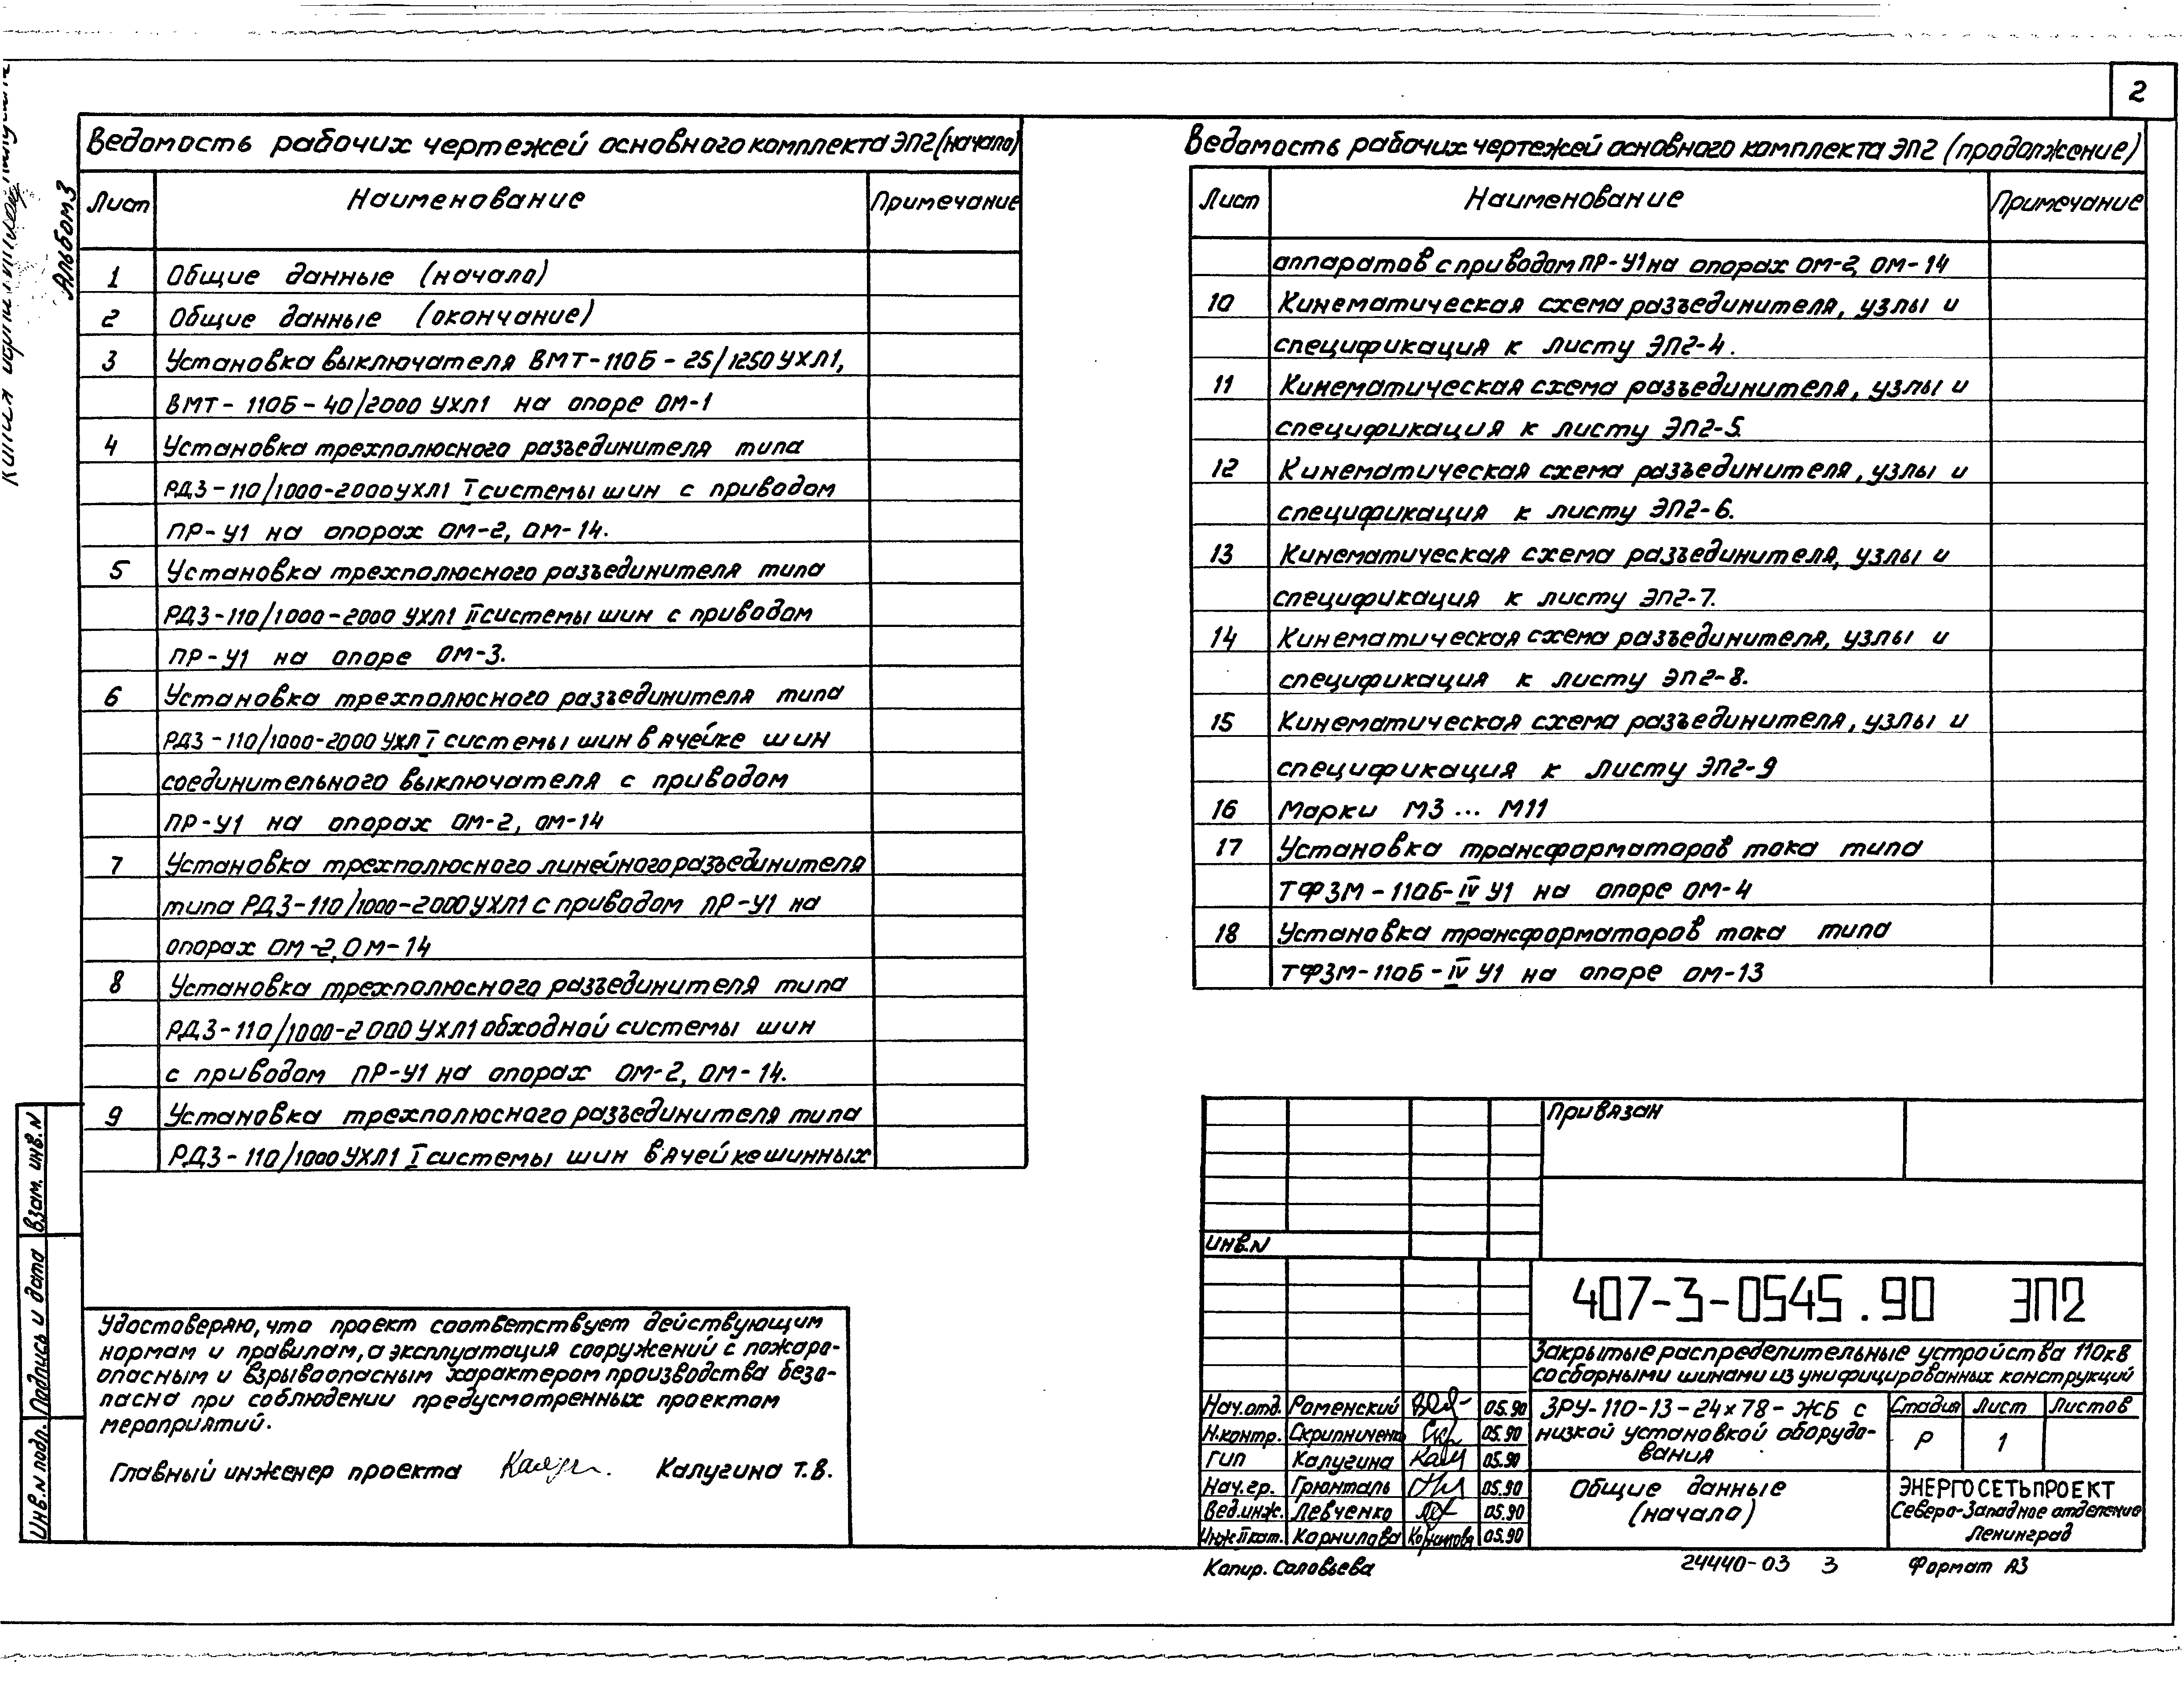 2
Альбом 3
Ведомость рабочих чертежей основного комплекта ЭП2 (начало)
Лист Наименование Примечание
1 Общие данные (начало)
2 Общие данные (окончание)
3 Установка выключателя ВМТ-110Б-25/1250 УХЛ1,
ВМТ-110Б-40/2000 УХЛ1 на опоре ОМ-1
4 Установка трехполюсного разъединителя типа
РДЗ-110/1000-2000 УХЛ1 I системы шин с приводом
ПР-У1 на опорах ОМ-2, ОМ-14.
5 Установка трехполюсного разъединителя типа
РДЗ-110/1000-2000 УХЛ1 II системы шин с приводом
ПР-У1 на опоре ОМ-3.
6 Установка трехполюсного разъединителя типа
РДЗ-110/1000-2000 УХЛ I системы шин в ячейке шин
соединительного выключателя с приводом
ПР-У1 на опорах ОМ-2, ОМ-14
7 Установка трехполюсного линейного разъединителя
типа РДЗ-110/1000-2000 УХЛ1 с приводом ПР-У1 на
опорах ОМ-2, ОМ-14
8 Установка трехполюсного разъединителя типа
РДЗ-110/1000-2000 УХЛ1 обходной системы шин
с приводом ПР-У1 на опорах ОМ-2, ОМ-14.
9 Установка трехполюсного разъединителя типа
РДЗ-110/1000 УХЛ1 I системы шин в ячейке шинных
Ведомость рабочих чертежей основного комплекта ЭП2 (продолжение)
Лист Наименование Примечание
аппаратов с приводом ПР-У1 на опорах ОМ-2, ОМ-14
10 Кинематическая схема разъединителя, узлы и
спецификация к листу ЭП2-4.
11 Кинематическая схема разъединителя, узлы и
спецификация к листу ЭП2-5.
12 Кинематическая схема разъединителя, узлы и
спецификация к листу ЭП2-6.
13 Кинематическая схема разъединителя, узлы и
спецификация к листу ЭП2-7.
14 Кинематическая схема разъединителя, узлы и
спецификация к листу ЭП2-8.
15 Кинематическая схема разъединителя, узлы и
спецификация к листу ЭП2-9
16 Марки М3 ... М11
17 Установка трансформаторов тока типа
ТФЗМ-110Б-IV У1 на опоре ОМ-4
18 Установка трансформаторов тока типа
ТФЗМ-110Б-IV У1 на опоре ОМ-13
Взам. инв. N
Подпись и дата
Инв. N подл.
Удостоверяю, что проект соответствует действующим
нормам и правилам, а эксплуатация сооружений с пожаро-
опасным и взрывоопасным характером производства безо-
пасна при соблюдении предусмотренных проектом
мероприятий.
Главный инженер проекта Калугина Т.В.
Привязан
Инв.N
407-3-0545.90 ЭП2
Закрытые распределительные устройства 110кВ
со сборными шинами из унифицированных конструкций
Нач.отд. Роменский 05.90
Н.контр. Скрипниченко 05.90
ГИП Калугина 05.90
Нач.гр. Грюнталь 05.90
Вед.инж. Левченко 05.90
Инж. II кат. Корнилова 05.90
ЗРУ-110-13-24×78-ЖБ с
низкой установкой оборудо-
вания
Стадия Лист Листов
Р 1
Общие данные
(начало)
ЭНЕРГОСЕТЬПРОЕКТ
Северо-Западное отделение
Ленинград
Копир. Соловьева
24440-03 3
Формат А3